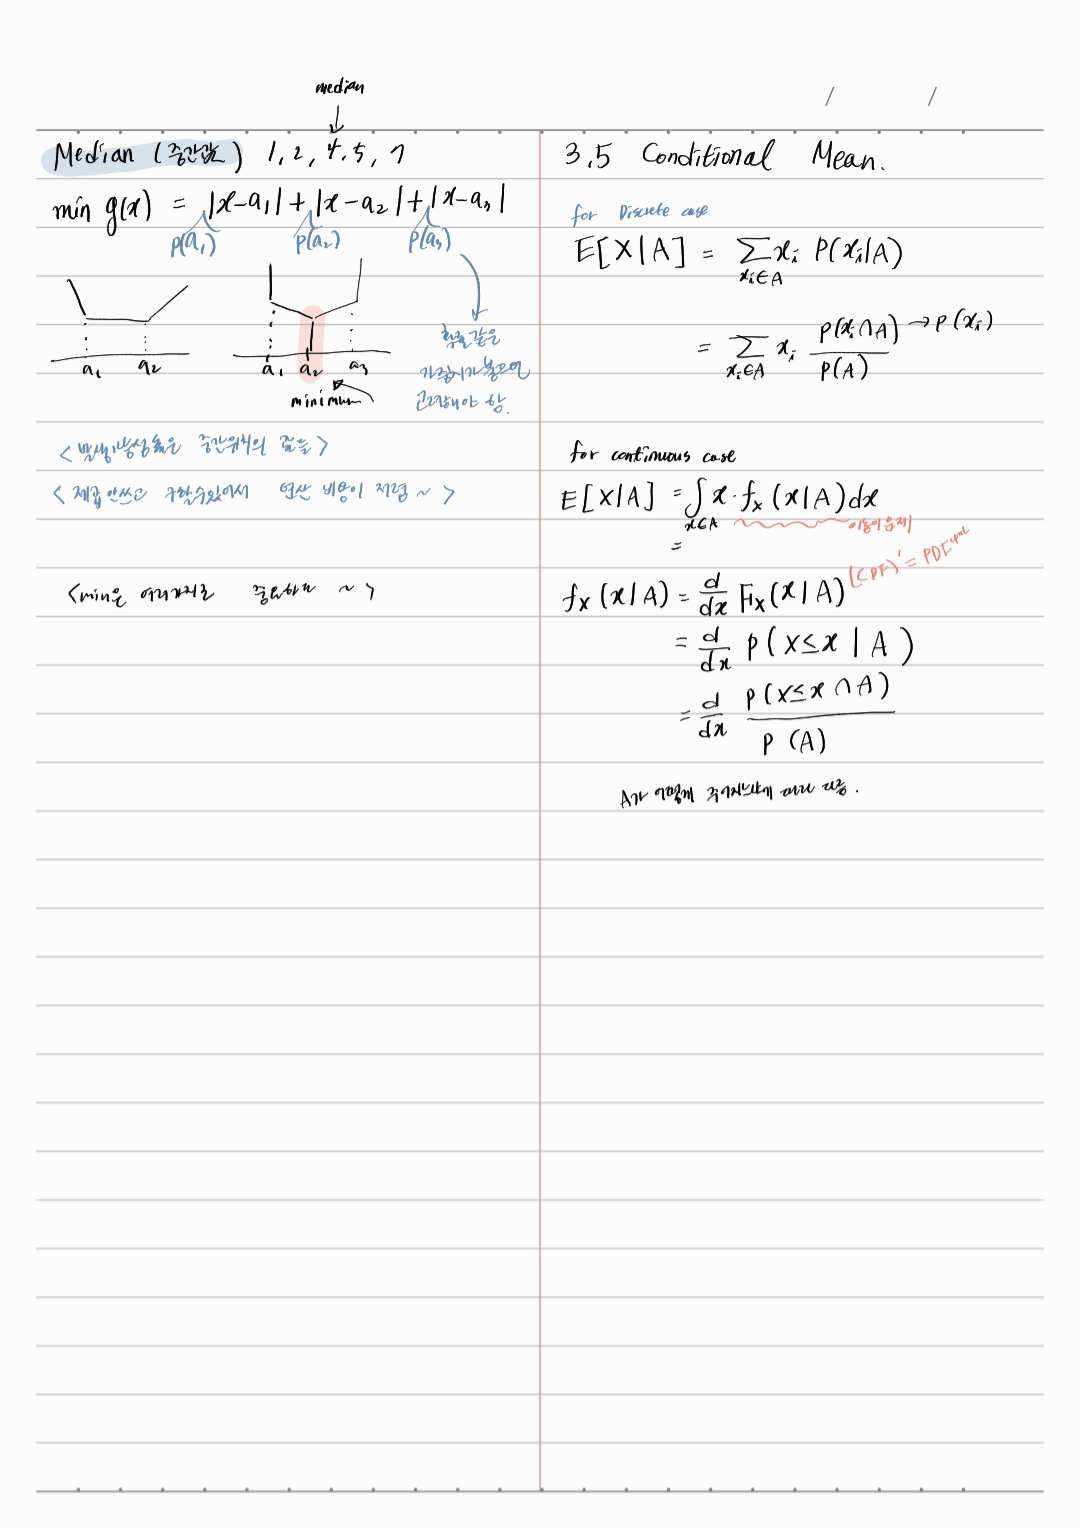 median
↓
Median (중간값) 1, 2, 4, 5, 7
min g(x) = |x-a₁| + |x-a₂| + |x-a₃|
P(a₁) P(a₂) P(a₃)
확률 같은
가중치가 붙으면
고려해야 함.
a₁ a₂
a₁ a₂ a₃
minimum
< 발생가능성 높은 중간위치의 값들 >
< 제곱 안쓰고 구할수있어서 연산 비용이 저렴 ~ >
<min은 여러가지로 중요하다 ~ >
/ /
3.5 Conditional Mean.
for Discrete case
E[X|A] = ∑_{xᵢ∈A} xᵢ P(xᵢ|A)
= ∑_{xᵢ∈A} xᵢ P(xᵢ∩A)/P(A) → P(xᵢ)
for continuous case
E[X|A] = ∫_{x∈A} x · fₓ(x|A)dx
이놈이 문제
=
fₓ(x|A) = d/dx Fₓ(x|A) (CDF)' = PDF
= d/dx P(X≤x | A)
= d/dx P(X≤x ∩ A)/P(A)
A가 어떻게 주어지느냐에 따라 다름.